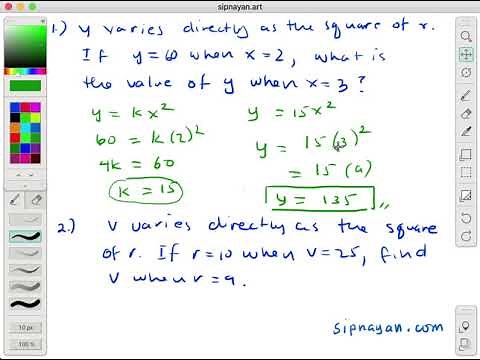 sipnayan.art
1.) y varies directly as the square of r.
If y=60 when x=2, what is
the value of y when x=3?
y = kx²
60 = k(2)²
4k = 60
k = 15
y = 15x²
y = 15(3)²
= 15(9)
y = 135
2.) V varies directly as the square
of r. If r=10 when V=25, find
V when r=9.
sipnayan.com
10 px
100 %